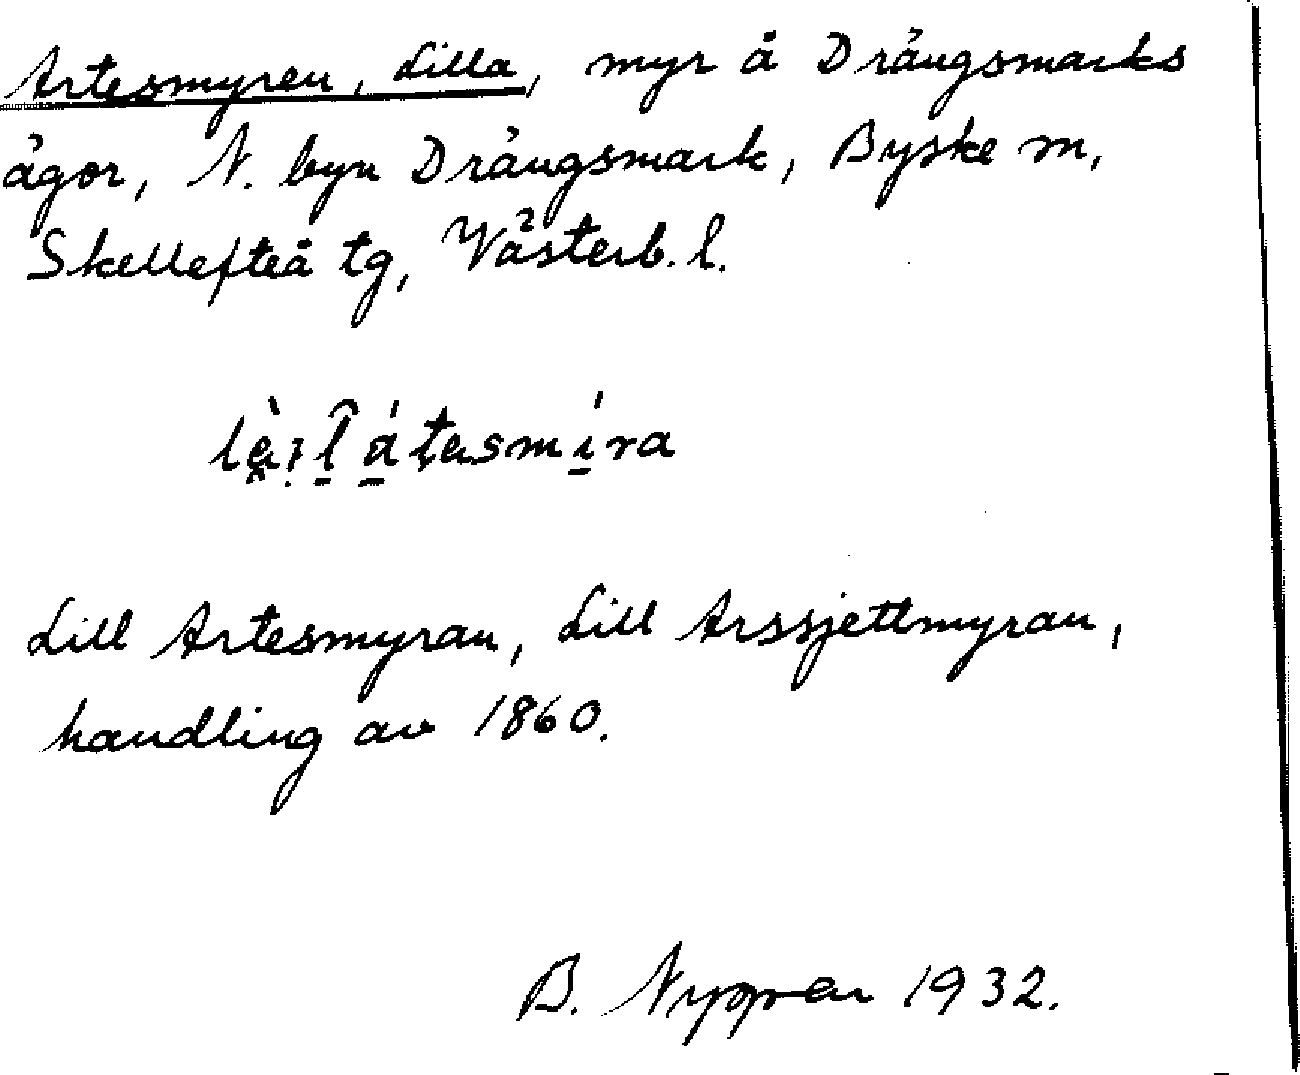 Artesmyren, Lilla, myr å Drängsmarks
ägor, N. byn Drängsmark, Byske sn,
Skellefteå tg, Västerb. l.
Lill Artesmyran, Lill Arssjettmyran,
handling av 1860.
B. Nygren 1932.